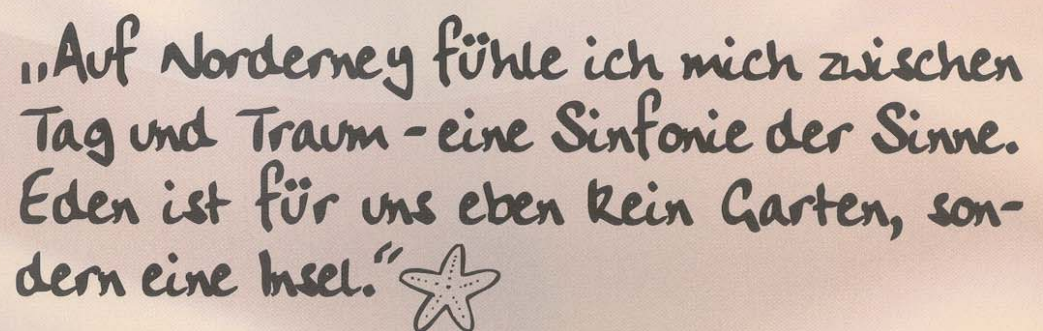 „Auf Norderney fühle ich mich zwischen
Tag und Traum - eine Sinfonie der Sinne.
Eden ist für uns eben kein Garten, son-
dern eine Insel.“